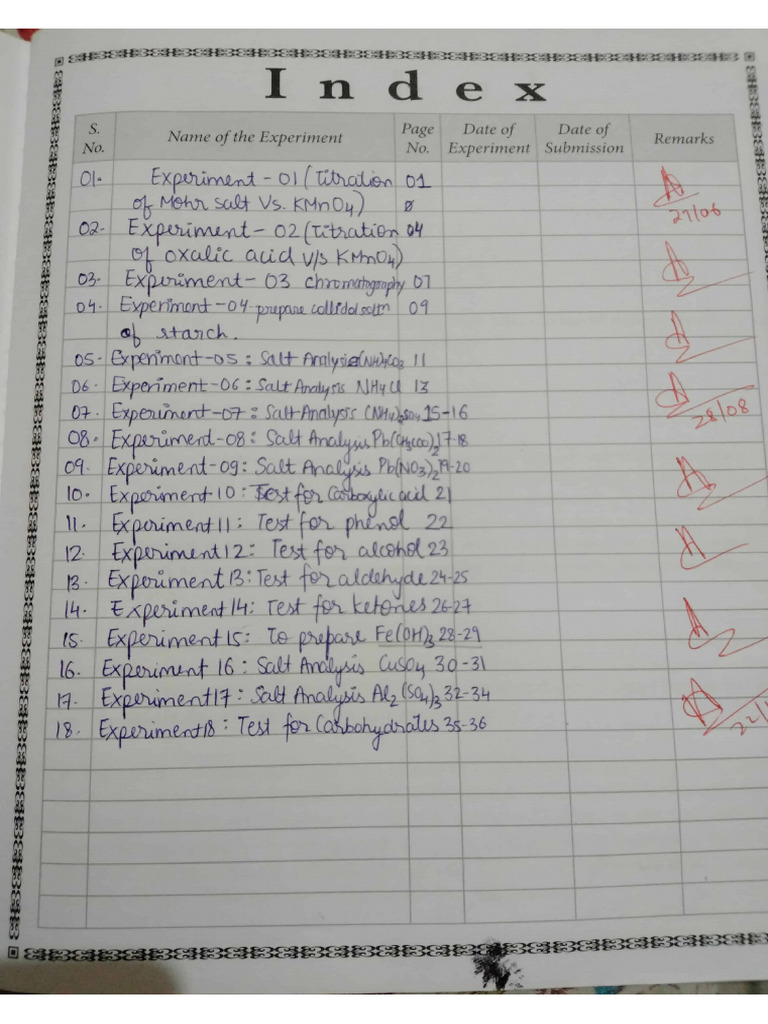 Index
S. No. Name of the Experiment Page No. Date of Experiment Date of Submission Remarks
01. Experiment - 01 (Titration 01
of Mohr salt Vs. KMnO4)
27/06
02. Experiment - 02 (Titration 04
of oxalic acid v/s KMnO4)
03. Experiment - 03 chromatography 07
04. Experiment - 04 prepare collidal soltn 09
of starch.
05. Experiment - 05 : Salt Analysis (NH4)2CO3 11
06. Experiment - 06 : Salt Analysis NH4Cl 13
07. Experiment - 07 : Salt Analysis (NH4)2SO4 15-16
28/08
08. Experiment - 08 : Salt Analysis Pb(CH3COO)2 17-18
09. Experiment - 09 : Salt Analysis Pb(NO3)2 19-20
10. Experiment 10 : Test for Carboxylic acid 21
11. Experiment 11 : Test for phenol 22
12. Experiment 12 : Test for alcohol 23
13. Experiment 13 : Test for aldehyde 24-25
14. Experiment 14 : Test for ketones 26-27
15. Experiment 15 : To prepare Fe(OH)3 28-29
16. Experiment 16 : Salt Analysis CuSO4 30-31
17. Experiment 17 : Salt Analysis Al2(SO4)3 32-34
18. Experiment 18 : Test for Carbohydrates 35-36